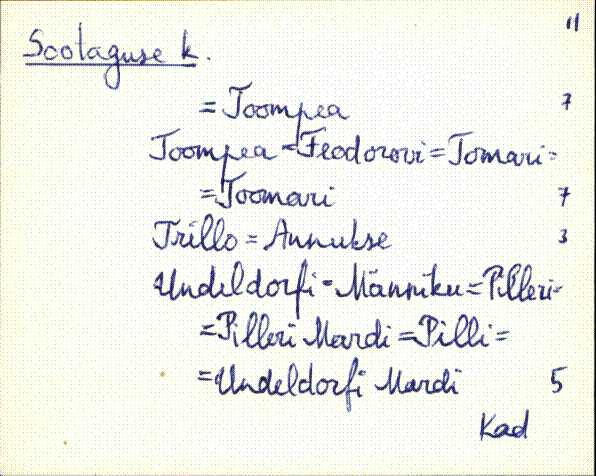 11
Sootaguse k.
= Toompea 7
Toompea = Feodorovi = Tomari =
= Toomari 7
Trillo = Annukse 3
Undeldorfi = Männiku = Pilleri =
= Pilleri Mardi = Pilli =
= Undeldorfi Mardi 5
Kad